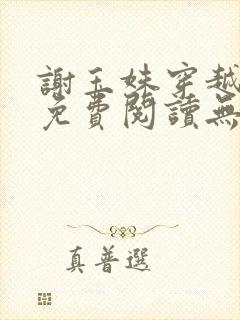 謝玉姝穿越
免費閱讀無
真普選